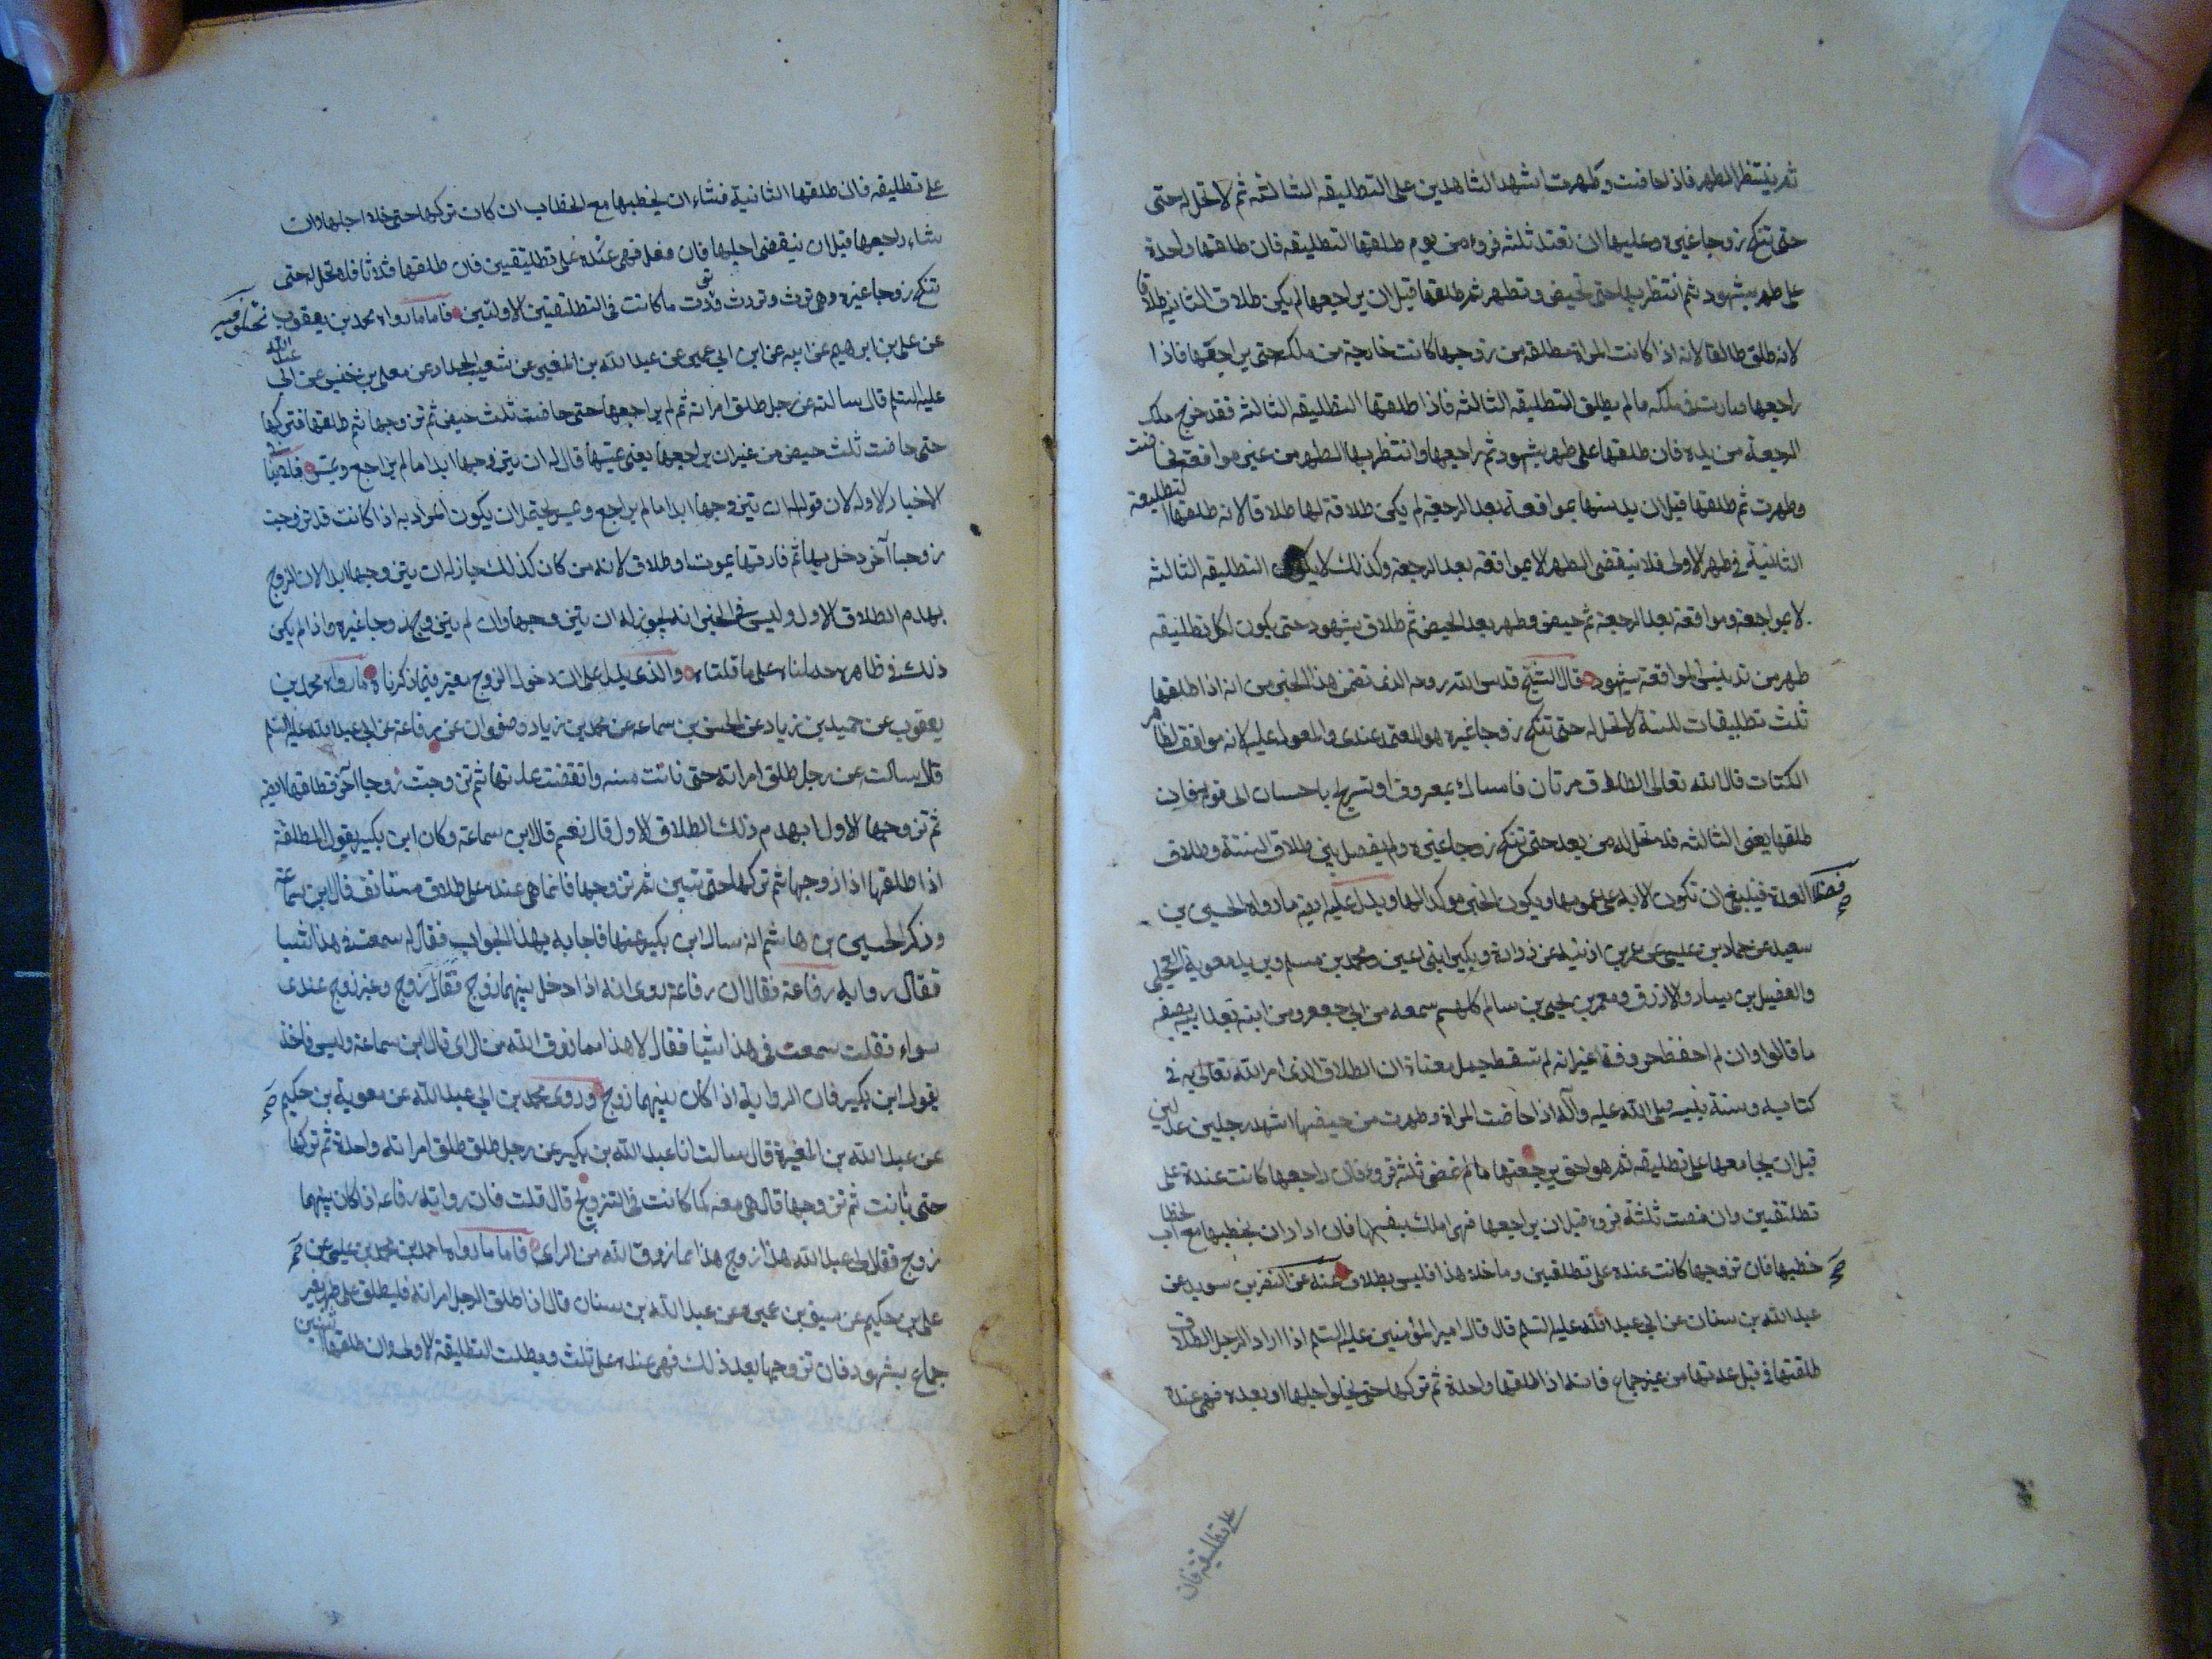 ثم ينتظر الطهر فاذا حاضت وطهرت اشهد الشاهدين على التطليقه الثالثه ثم لا تحل له حتى
حتى تنكح زوجا غيره وعليها ان تعتد ثلثه قروء من يوم طلقها التطليقه فان طلقها واحدة
على طهر بشهود ثم انتظر بها حتى تحيض وتطهر ثم طلقها قبل ان يراجعها لم يكن طلاق الثانيه طلاقا
لانه طلق طالقا لانه اذا كانت المراة مطلقه من زوجها كانت خارجة من ملكه حتى يراجعها فاذا
راجعها صارت في ملكه ما لم يطلق التطليقه الثالثه فاذا طلقها التطليقه الثالثه فقد خرج ملك
الرجعة من يده فان طلقها على طهر بشهود ثم راجعها وانتظر بها الطهر من غير مواقعة فحاضت
وطهرت ثم طلقها قبل ان يدنسها بمواقعة بعد الرجعة لم يكن طلاقه لها طلاقا لانه طلقها التطليقة
الثانية في طهر الاولى فلا ينقضى الطهر الا بمواقعه بعد الرجعة وكذلك لا يكون التطليقه الثالثه
الا بمراجعة ومواقعة بعد الرجعة ثم حيض وطهر بعد الحيض ثم طلاق بشهود حتى يكون لكل تطليقه
طهر من تدنيس المواقعه بشهود قال الشيخ قدس الله روحه الذى تضمن هذا الخبر من انه اذا طلقها
ثلث تطليقات للسنة لا تحل له حتى تنكح زوجا غيره هو المعتمد عندى والمعول عليه لانه موافق لظاهر
الكتاب قال الله تعالى الطلاق مرتان فامساك بمعروف او تسريح باحسان الى قوله فان
طلقها يعنى الثالثه فلا تحل له من بعد حتى تنكح زوجا غيره ولم يفصل بين طلاق السنة وطلاق
العدة فينبغى ان تكون الايه على عمومها ويكون الخبر موكدا لها ويدل عليه ايضا ما رواه الحسين بن
سعيد عن حماد بن عيسى عن عمر بن اذينه عن زرارة وبكير ابنى اعين ومحمد بن مسلم وبريد بن معوية العجلى
والفضيل بن يسار والازرق ومعمر بن يحيى بن سالم كلهم سمعه من ابى جعفر ومن ابنه بعد ابيه بصفه
ما قالوا وان لم احفظ حروفه غير انه لم يسقط جمل معناه ان الطلاق الذى امر الله تعالى به في
كتابه وسنة نبيه صلى الله عليه وآله اذا حاضت المراة وطهرت من حيضها اشهد رجلين عدلين
قبل ان يجامعها على تطليقه ثم هو احق برجعتها ما لم تمض ثلثة قروء فان راجعها كانت عنده على
تطليقتين وان مضت ثلثة قروء قبل ان يراجعها فهى املك بنفسها فان اراد ان يخطبها مع الخطاب
خطبها فان تزوجها كانت عنده على تطليقتين وما خلا هذا فليس بطلاق عنه عن النضر بن سويد عن
عبد الله بن سنان عن ابى عبد الله عليه السلم قال قال امير المؤمنين عليه السلم اذا اراد الرجل الطلاق
طلقها في قبل عدتها من غير جماع فانه اذا طلقها واحدة ثم تركها حتى يخلو اجلها او بعده فهى عنده
على تطليقه فان
على تطليقه فان طلقها الثانية فشاء ان يخطبها مع الخطاب ان كان تركها حتى خلا اجلها وان
شاء راجعها قبل ان ينقضى اجلها فان فعل فهى عنده على تطليقتين فان طلقها ثلاثا فلا تحل له حتى
تنكح زوجا غيره وهى ترث وتورث ما كانت في التطليقتين الاولتين فاما ما رواه محمد بن يعقوب
عن على بن ابرهيم عن ابيه عن ابن ابى عمير عن عبد الله بن المغيرة عن شعيب الحداد عن معلى بن خنيس عن ابى عبد الله
عليه السلم قال سالته عن رجل طلق امراته ثم لم يراجعها حتى حاضت ثلث حيض ثم تزوجها ثم طلقها فتركها
حتى حاضت ثلث حيض من غير ان يراجعها يعنى يمسها قال له ان يتزوجها ابدا ما لم يراجع ويمس
الاخبار الاولة لان قوله له ان يتزوجها ابدا ما لم يراجع ويمس يحتمل ان يكون المراد به اذا كانت قد تزوجت
زوجا آخر دخل بها ثم فارقها بموت او طلاق لانه من كان كذلك جاز له ان يتزوجها ابدا لان الزوج
يهدم الطلاق الاول وليس في الخبر انه يجوز له ان يتزوجها وان لم يتزوج زوجا غيره واذا لم يكن
ذلك في ظاهره حملناه على ما قلناه والذى يدل على ان دخول الزوج معتبر فيما ذكرناه ما رواه محمد بن
يعقوب عن حميد بن زياد عن الحسن بن سماعه عن محمد بن زياد وصفوان عن رفاعة عن ابى عبد الله عليه السلم
قال سالت عن رجل طلق امراته حتى بانت منه وانقضت عدتها ثم تزوجت زوجا آخر فطلقها ايضا
ثم تزوجها الاول ايهدم ذلك الطلاق الاول قال نعم قال ابن سماعة وكان ابن بكير يقول المطلقة
اذا طلقها اذا زوجها ثم تركها حتى تبين ثم تزوجها فانما هى عنده على طلاق مستانف قال ابن سماعة
وذكر الحسين بن هاشم انه سال ابن بكير عنها فاجابه بهذا الجواب فقال له سمعت في هذا شيئا
فقال رواية رفاعة فقال ان رفاعة روى انه اذا دخل بينهما زوج فقال زوج وغير زوج عندى
سواء فقلت سمعت في هذا شيئا فقال لا هذا مما رزق الله من الراى قال ابن سماعة وليس ناخذ
بقول ابن بكير فان الرواية اذا كان بينهما زوج وروى محمد بن ابى عبد الله عن معوية بن حكيم
عن عبد الله بن المغيرة قال سالت انا عبد الله بن بكير عن رجل طلق طلق امراته واحدة ثم تركها
حتى بانت ثم تزوجها قال هى معه كما كانت في التزويج قال قلت فان رواية رفاعه اذا كان بينهما
زوج فقال لى عبد الله هذا زوج هذا مما رزق الله من الراى فاما ما رواه احمد بن محمد بن عيسى عن
على بن حكيم عن سيف بن عميره عن عبد الله بن سنان قال اذا طلق الرجل امراته فليطلق على طهر بغير
جماع بشهود فان تزوجها بعد ذلك فهى عنده على ثلث وبطلت التطليقة الاولى وان طلقها اثنتين